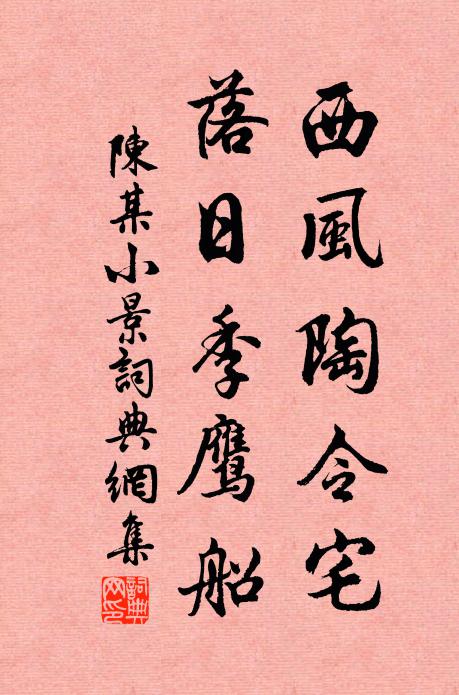 西風陶令宅
落日季鷹船
陳某小景詞典網集
詞典网印